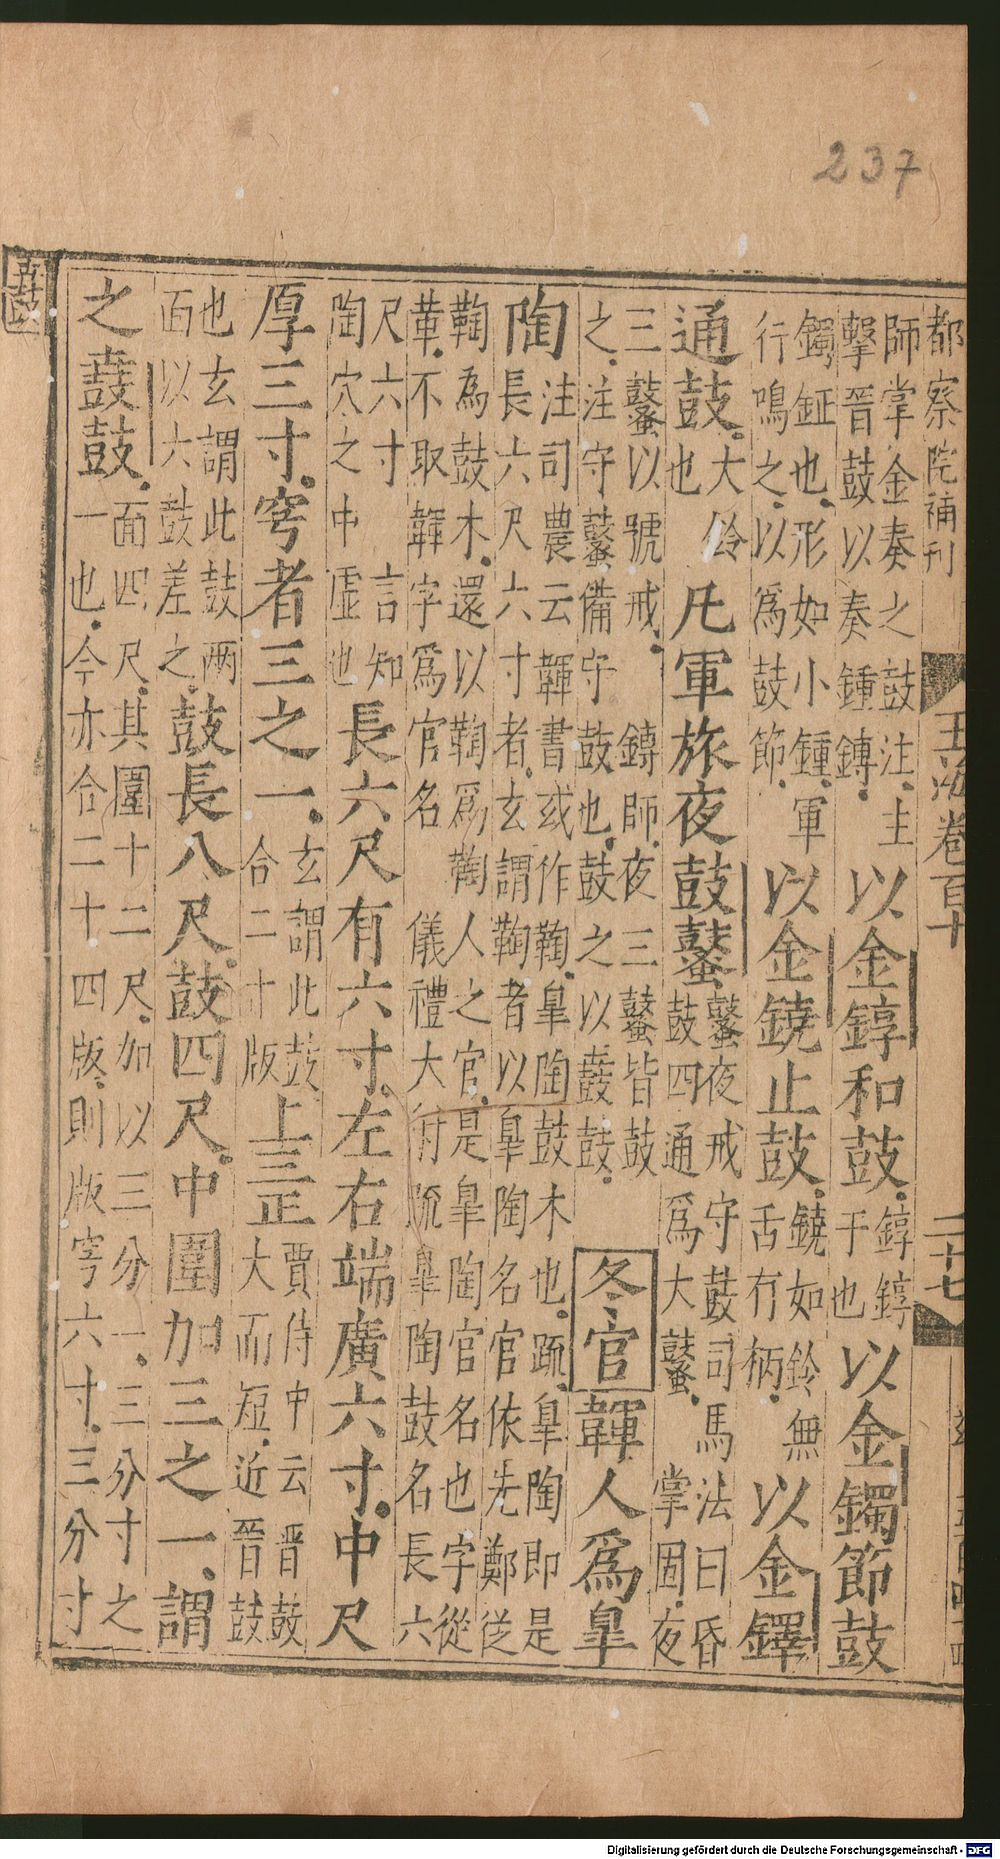 237
都察院補刊
玉海卷百十
二十七
師掌金奏之鼓注主
擊晉鼓以奏鍾鎛
以金錞和鼓
錞錞
于也
以金鐲節鼓
鐲鉦也形如小鍾軍
行鳴之以爲鼓節
以金鐃止鼓
鐃如鈴無
舌有柄
以金鐸
通鼓
大鈴
也
凡軍旅夜鼓鼜
鼜夜戒守鼓司馬法曰昏
鼓四通爲大鼜
掌固夜
三鼜以號戒
鎛師夜三鼜皆鼓
之注守鼜備守鼓也鼓之以鼖鼓
冬官
韗人爲皐
陶
注司農云韗書或作鞠皐陶鼓木也疏皐陶即是
長六尺六寸者玄謂鞠者以皐陶名官依先鄭從
鞠爲鼓木還以鞠爲鞠人之官是皐陶官名也字從
革不取韗字爲官名
儀禮大射疏皐陶鼓名長六
尺六寸
言知
陶穴之中虛也
長六尺有六寸左右端廣六寸中尺
厚三寸穹者三之一
玄謂此鼓
合二十版
上三正
賈侍中云晋鼓
大而短近晉鼓
也玄謂此鼓兩
面以六鼓差之
鼓長八尺鼓四尺中圍加三之一謂
之鼖鼓
面四尺其圍十二尺加以三分一三分寸之
一也今亦合二十四版則版穹六寸三分寸
Digitalisierung gefördert durch die Deutsche Forschungsgemeinschaft - DFG